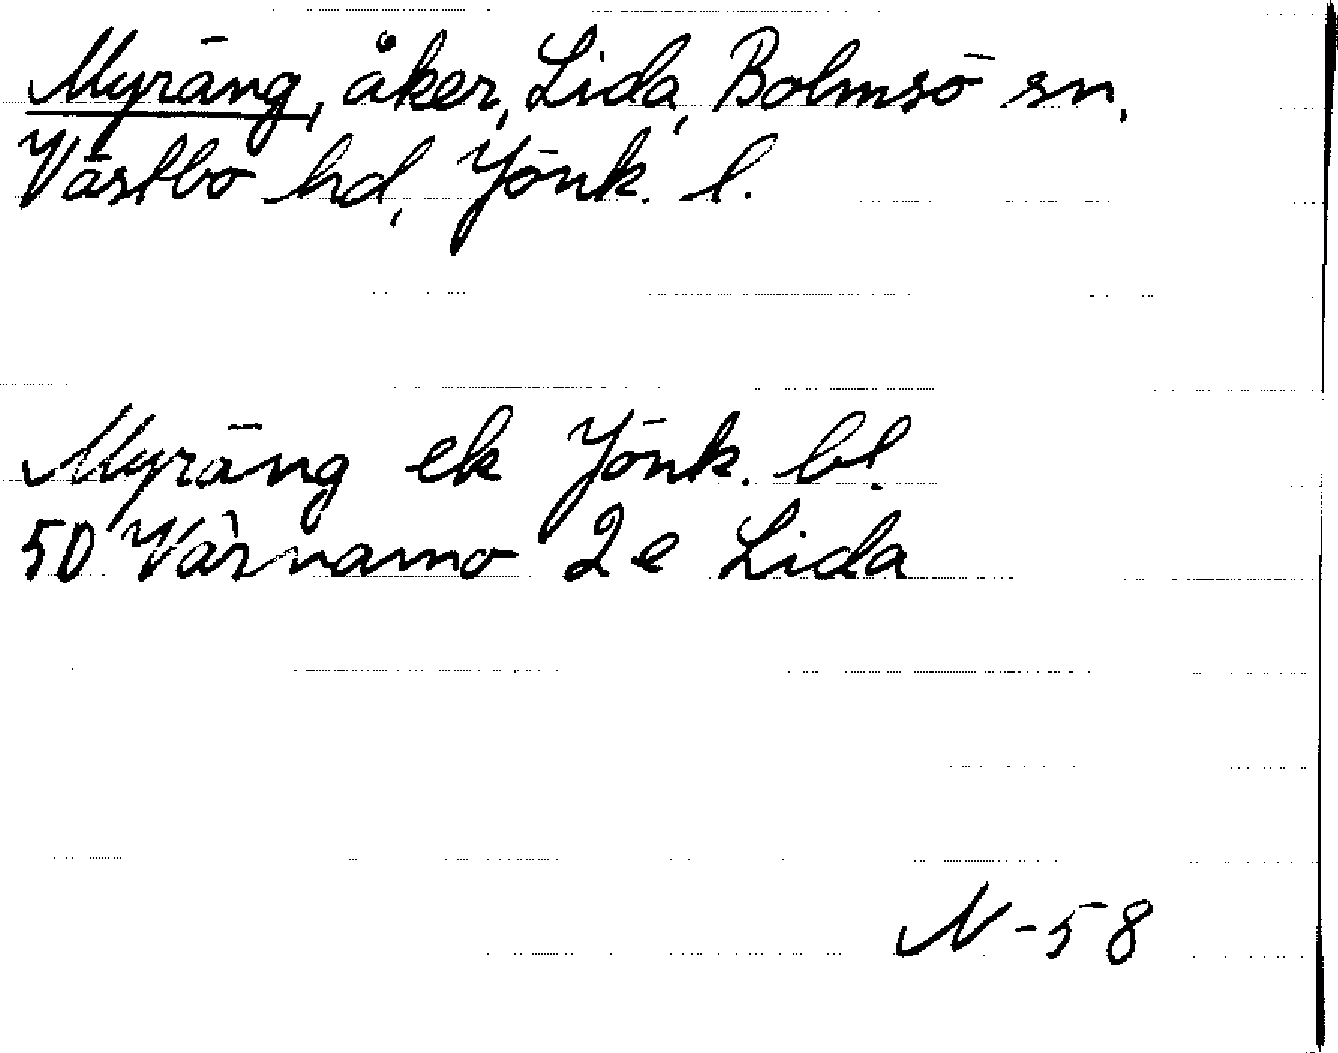 Myräng, åker, Lida, Bolmsö sn,
Västbo hd, Jönk. l.
Myräng ek Jönk. bl.
5D Värnamo 2e Lida
N-58